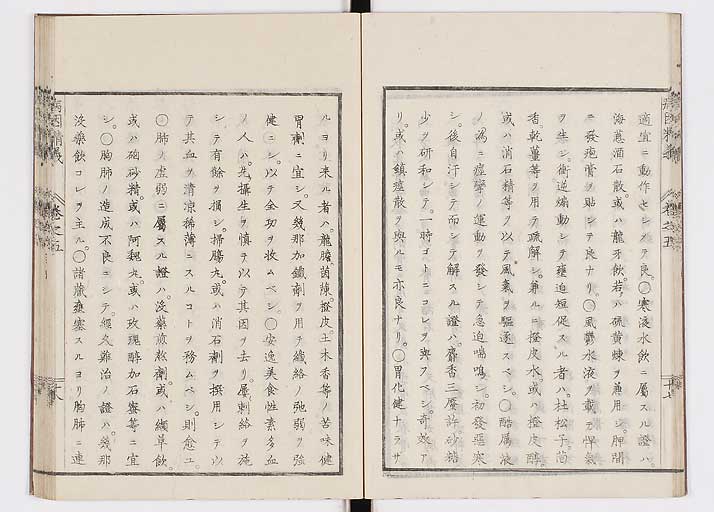 適宜ニ動作セシメテ良。〇寒液水飲ニ屬スル證ハ。
海葱酒石散。或ハ龍牙飲。若ハ硫黄煉ヲ兼用シ。胛間
ニ發疱膏ヲ貼シテ良ナリ。〇風欝水液ヲ載テ悍氣
ヲ生シ。衝逆煽動シテ壅迫短促スル者ハ。杜松子。茴
香。乾薑等ヲ用テ疏解シ。兼ルニ橙皮水。或ハ橙皮酵。
或ハ消石精等ヲ以テ風氣ヲ驅逐スベシ。〇酷厲液
ノ爲ニ痙攣ノ運動ヲ發シテ急迫喘鳴シ。初發惡寒
シ。後自汗シテ而シテ解スル證ハ。麝香三厘許。砂糖
少ヲ研和シテ。一時ゴトニコレヲ與フベシ。奇效ア
リ。或ハ鎮痙散ヲ與ルモ亦良ナリ。〇胃化健ナラザ
ルヨリ來ル者ハ。龍膽。茵蔯。橙皮。土木香等ノ苦味健
胃劑ニ宜シ。又幾那加鐵劑ヲ用テ纖絡ノ弛弱ヲ強
健ニシ。以テ全功ヲ收ムベシ。〇安逸美食性素多血
ノ人ハ。先攝生ヲ慎テ以テ其因ヲ去リ。屡刺絡ヲ施
シテ有餘ヲ損シ。掃膓丸。或ハ消石劑ヲ撰用シテ以
テ其血ヲ清凉稀薄ニスルコトヲ務ムベシ。則愈ユ。
〇肺ノ虚弱ニ屬スル證ハ。没藥煎敘劑。或ハ纈草飲。
或ハ硇砂精。或ハ阿魏丸。或ハ玫瑰酵加石麝等ニ宜
シ。〇胸肺ノ造成不良ニシテ。經久難治ノ證ハ。幾那
没藥飲コレヲ主ル。〇諸藏壅塞スルヨリ胸肺ニ連